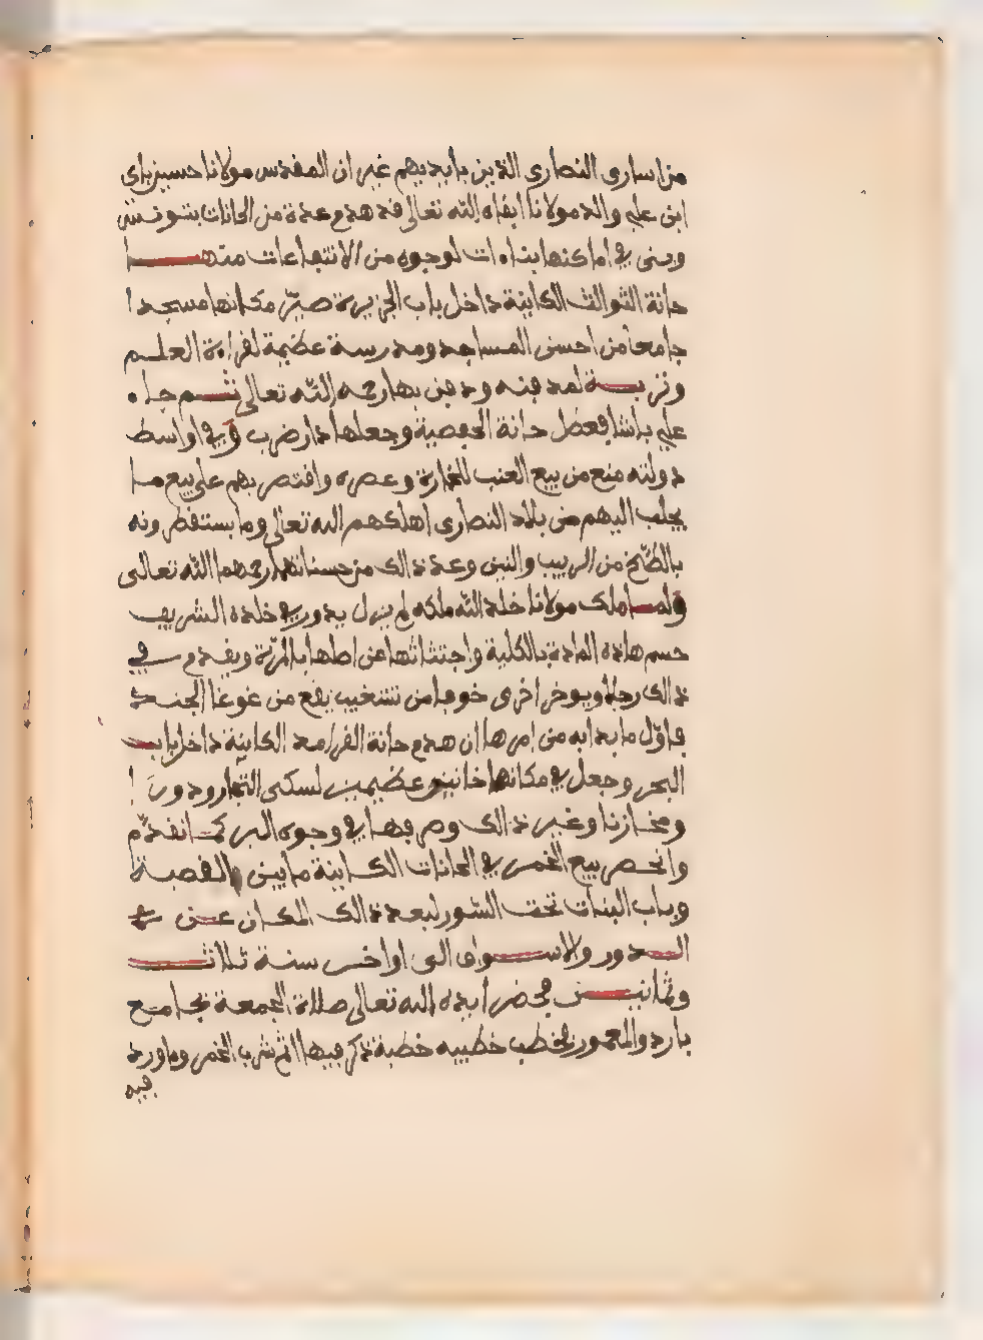 من اسارى النصارى الذين بايديهم غير ان المقدس مولانا حسين باي
ابن علي والد مولانا ابقاه الله تعالى قد هدم عدة من الحانات بتونس
وبنى في اماكنها بناءات لوجوه من الانتفاعات منها
حانة الثوالث الكاينة داخل باب الجزيرة صيّر مكانها مسجدا
جامعا من احسن المساجد ومدرسة عظيمة لقراءة العلم
وتربة لمدفنه ودفن بها رحمه الله تعالى ثم جاء
علي باشا فعطل حانة الحفصية وجعلها دار ضرب وفي اواسط
دولته منع من بيع العنب للخمارة وعصره واقتصر بهم على بيع ما
يجلب اليهم من بلاد النصارى اهلكهم الله تعالى وما يستقطرونه
بالطبخ من الزبيب والتين وعد ذالك من حسناتهما رحمهما الله تعالى
ولما ملك مولانا خلد الله ملكه لم يزل يدور في خلده الشريف
حسم هاذه المادة بالكلية واجتثاثها من اصلها بالمرّة ويقدم في
ذالك رجلا ويوخر اخرى خوفا من تشغيب يقع من غوغا الجند
فاوّل ما بدا به من امرها ان هدم حانة القرامد الكاينة داخل باب
البحر وجعل في مكانها خانين عظيمين لسكنى التجار ودورا
ومخازنا وغير ذالك وصرفها في وجوه البر كما تقدّم
وانحصر بيع الخمر في الحانات الكاينة ما بين القصبة
وباب البنات تحت السور لبعد ذالك المكان عن
الدور والاسواق الى اواخر سنة ثلاث
وثمانين فحضر ايده الله تعالى صلاة الجمعة بجامع
باردو المعمور فخطب خطيبه خطبة ذكر فيها اثم شرب الخمر وما ورد
فيه